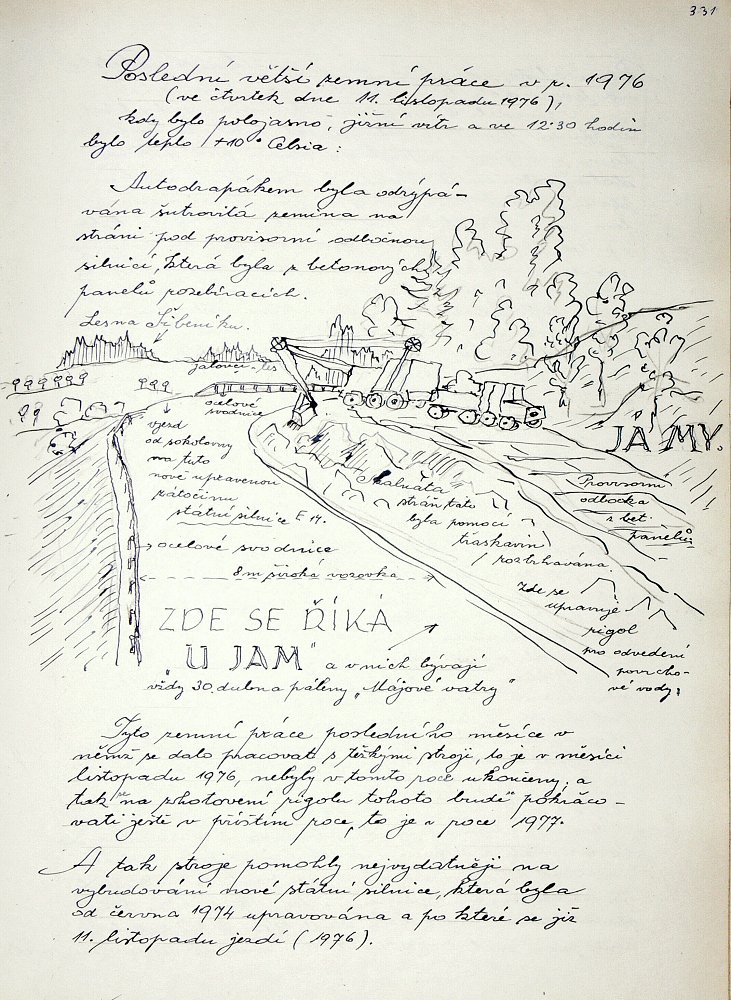 331
Poslední větší zemní práce v r. 1976
(ve čtvrtek dne 11. listopadu 1976),
kdy bylo polojasno, jižní vítr a ve 12·30 hodin
bylo teplo +10° Celsia:
Autodrapákem byla odrýpá-
vána šutrovitá zemina na
stráni pod provisorní odbočnou
silnicí, která byla z betonových
panelů rozebíracích.
Lesna Šibeníku.
jalovčí les
ocelové
svodnice
vjezd
od sokolovny
na tuto
nově upravenou
zátočinu
státní silnice E 14.
JÁMY.
Skalnatá
stráň tato
byla pomocí
třaskavin
roztrhávána.
Provisorní
odbočka
z bet.
panelů.
ocelové svodnice
8 m široká vozovka
Zde se
upravuje
rigol
pro odvedení
povrcho-
vé vody.
ZDE SE ŘÍKÁ
"U JAM" a v nich bývají
vždy 30. dubna páleny „Májové vatry"
Tyto zemní práce posledního měsíce v
němž se dalo pracovat s těžkými stroji, to je v měsíci
listopadu 1976, nebyly v tomto roce ukončeny, a
tak se na zhotovení rigolu tohoto bude pokračo-
vati ještě v příštím roce, to je v roce 1977.
A tak stroje pomohly nejvydatněji na
vybudování nové státní silnice, která byla
od června 1974 upravována a po které se již
11. listopadu jezdí (1976).